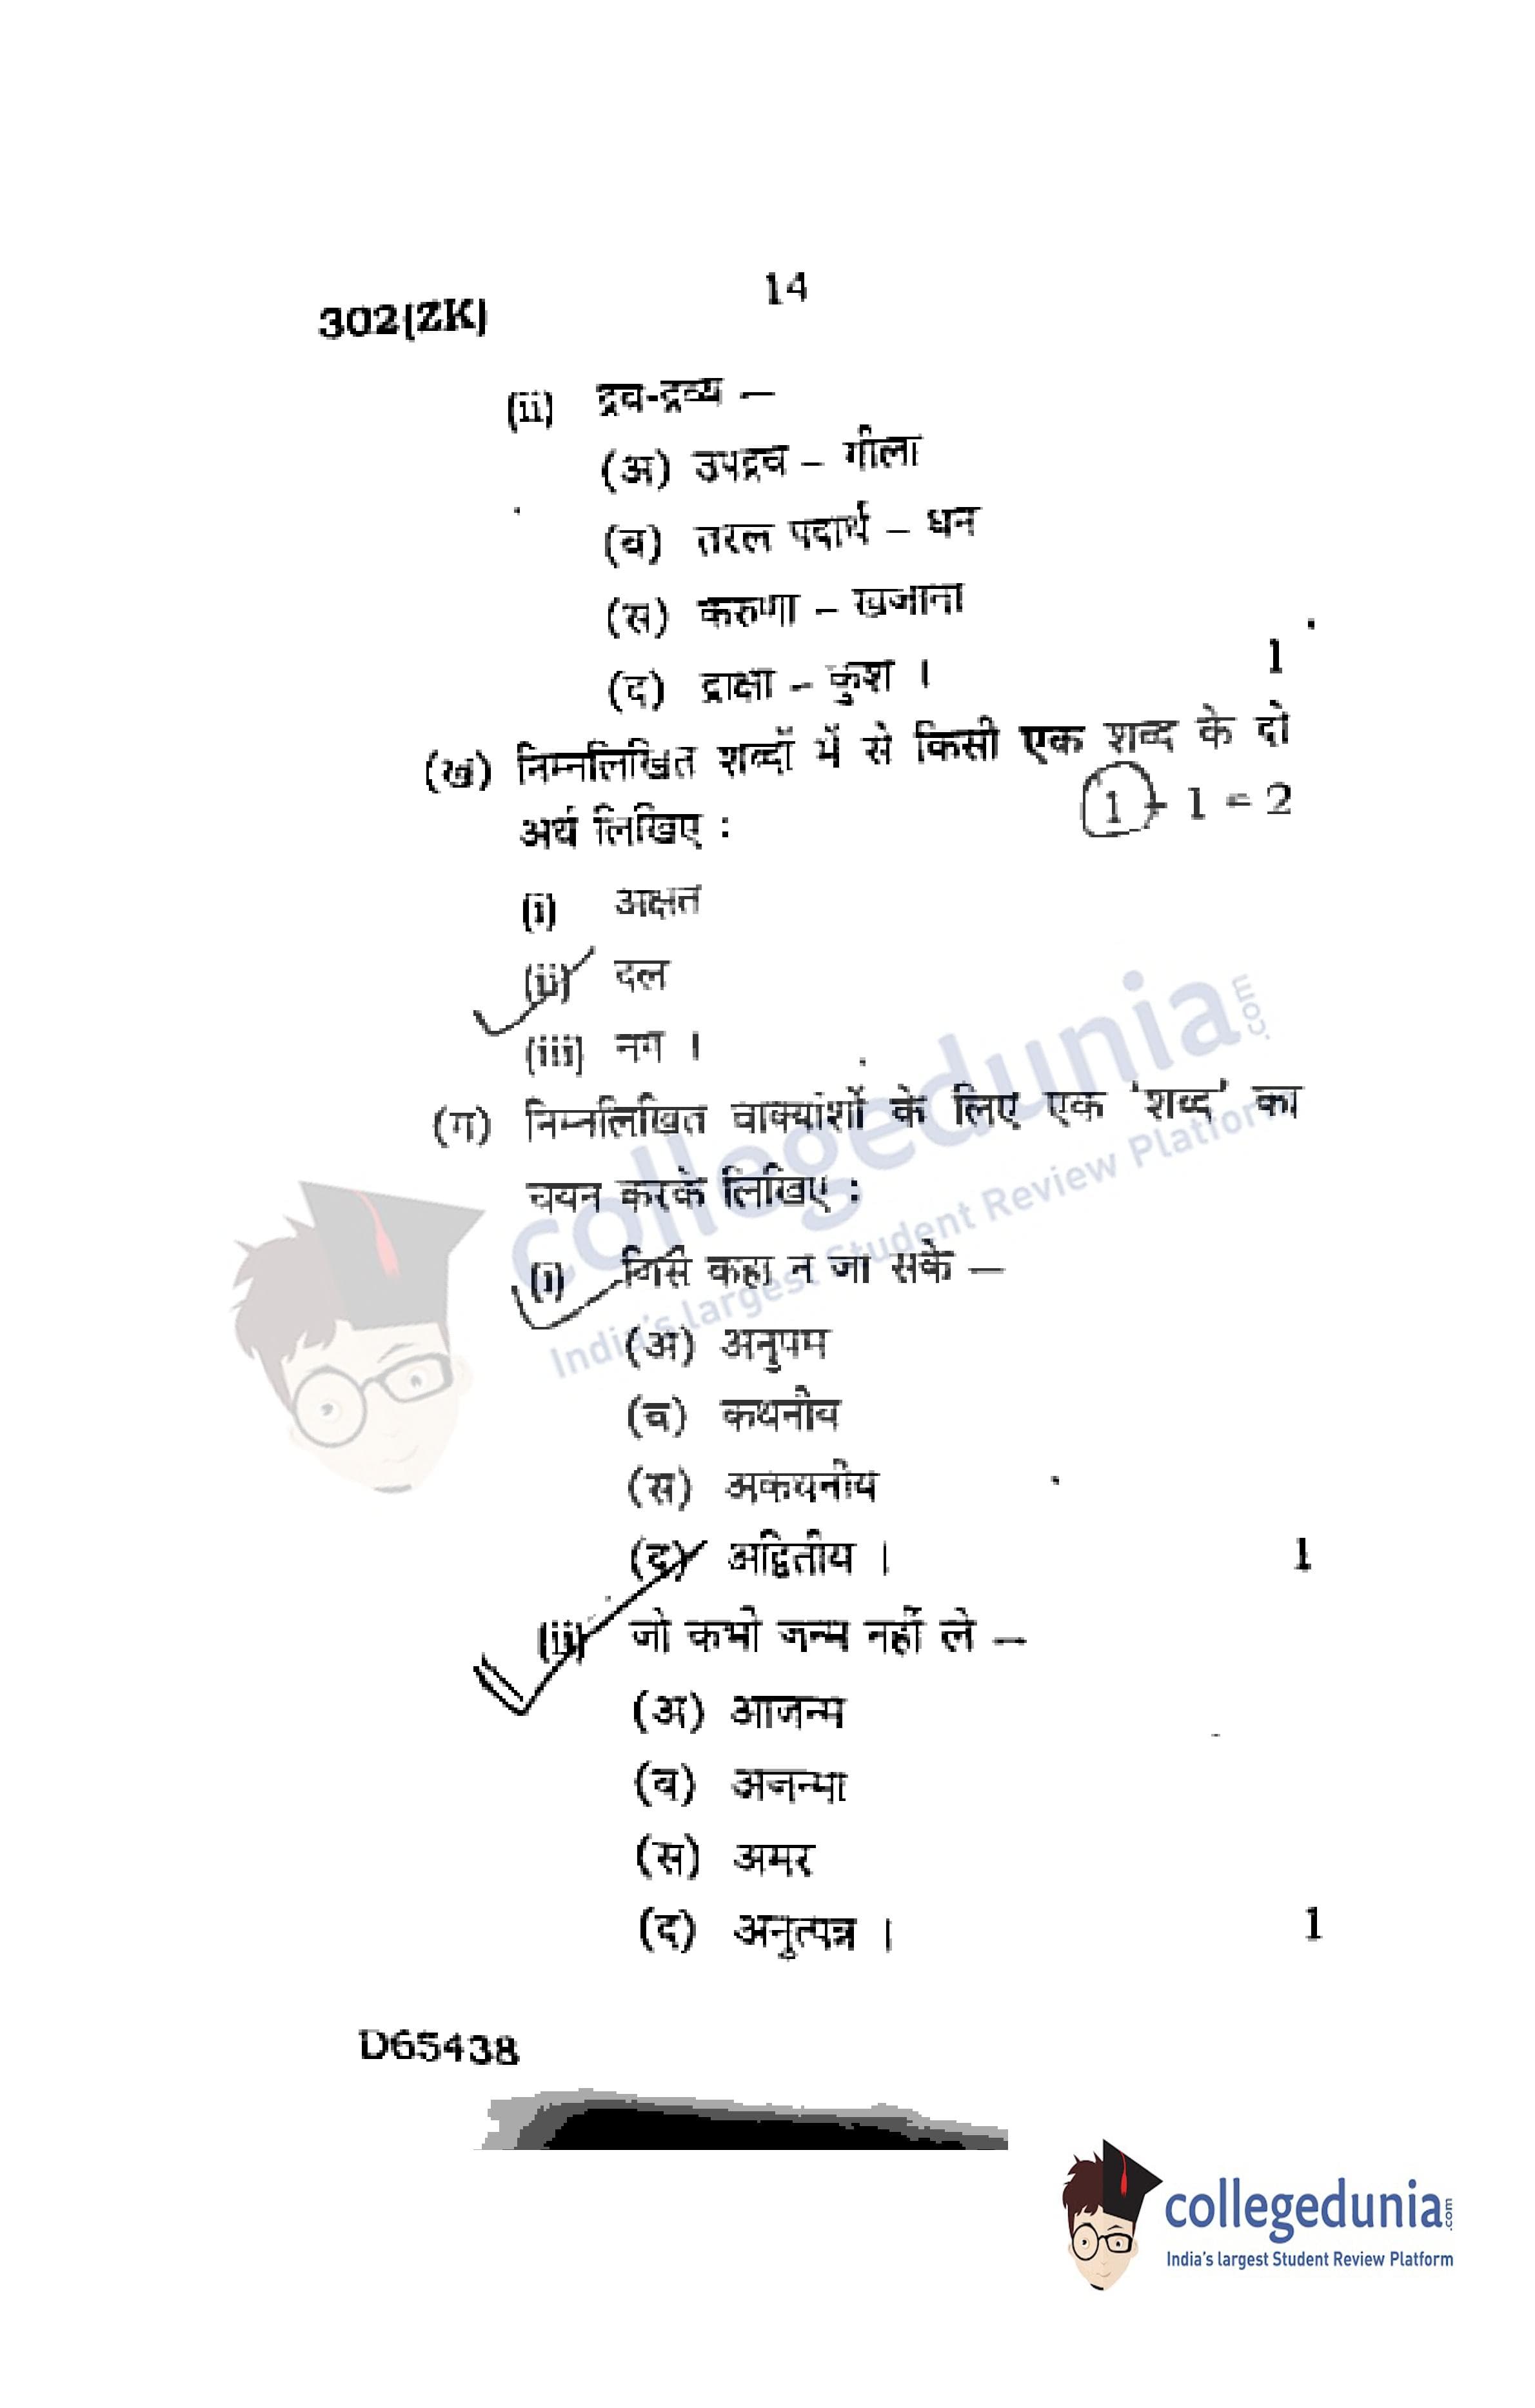 14
302(ZK)
(ii) द्रव-द्रव्य —
(अ) उपद्रव – गीला
(ब) तरल पदार्थ – धन
(स) करुणा – खजाना
(द) द्राक्षा – कुश ।
1
(ख) निम्नलिखित शब्दों में से किसी एक शब्द के दो
अर्थ लिखिए : 1 + 1 = 2
(i) अक्षत
(ii) दल
(iii) नग ।
(ग) निम्नलिखित वाक्यांशों के लिए एक 'शब्द' का
चयन करके लिखिए :
(i) जिसे कहा न जा सके —
(अ) अनुपम
(ब) कथनीय
(स) अकथनीय
(द) अद्वितीय । 1
(ii) जो कभी जन्म नहीं ले —
(अ) आजन्म
(ब) अजन्मा
(स) अमर
(द) अनुत्पन्न । 1
D65438
collegedunia.com
India's largest Student Review Platform
collegedunia.com
India's largest Student Review Platform